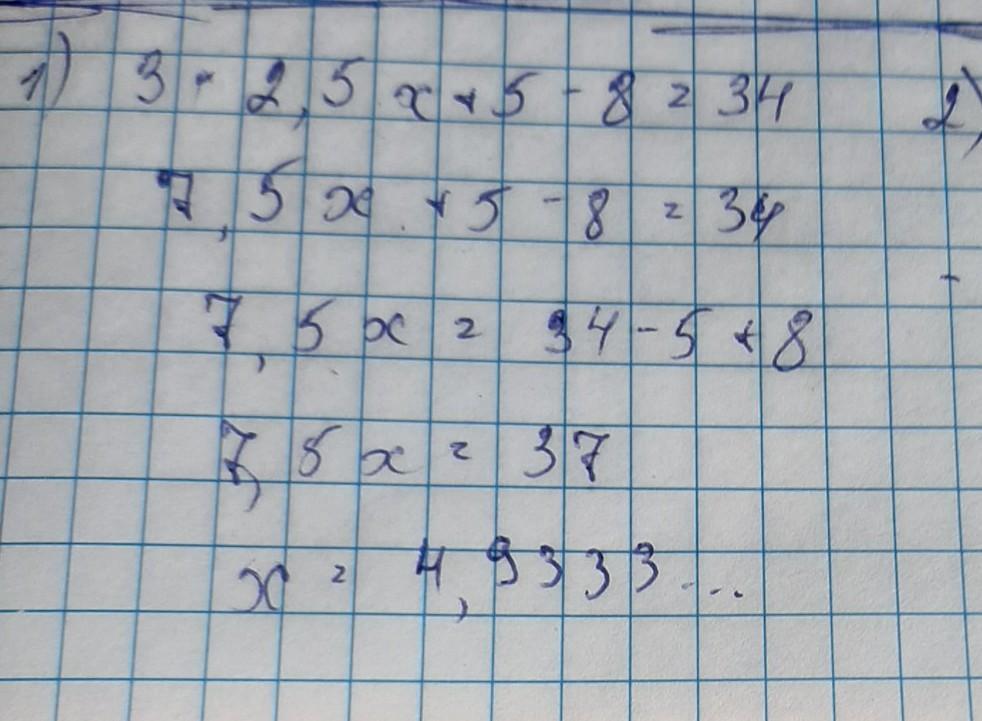 1) 3 · 2,5x + 5 - 8 = 34 2)
7,5x + 5 - 8 = 34
7,5x = 34 - 5 + 8
7,5x = 37
x = 4,9333...